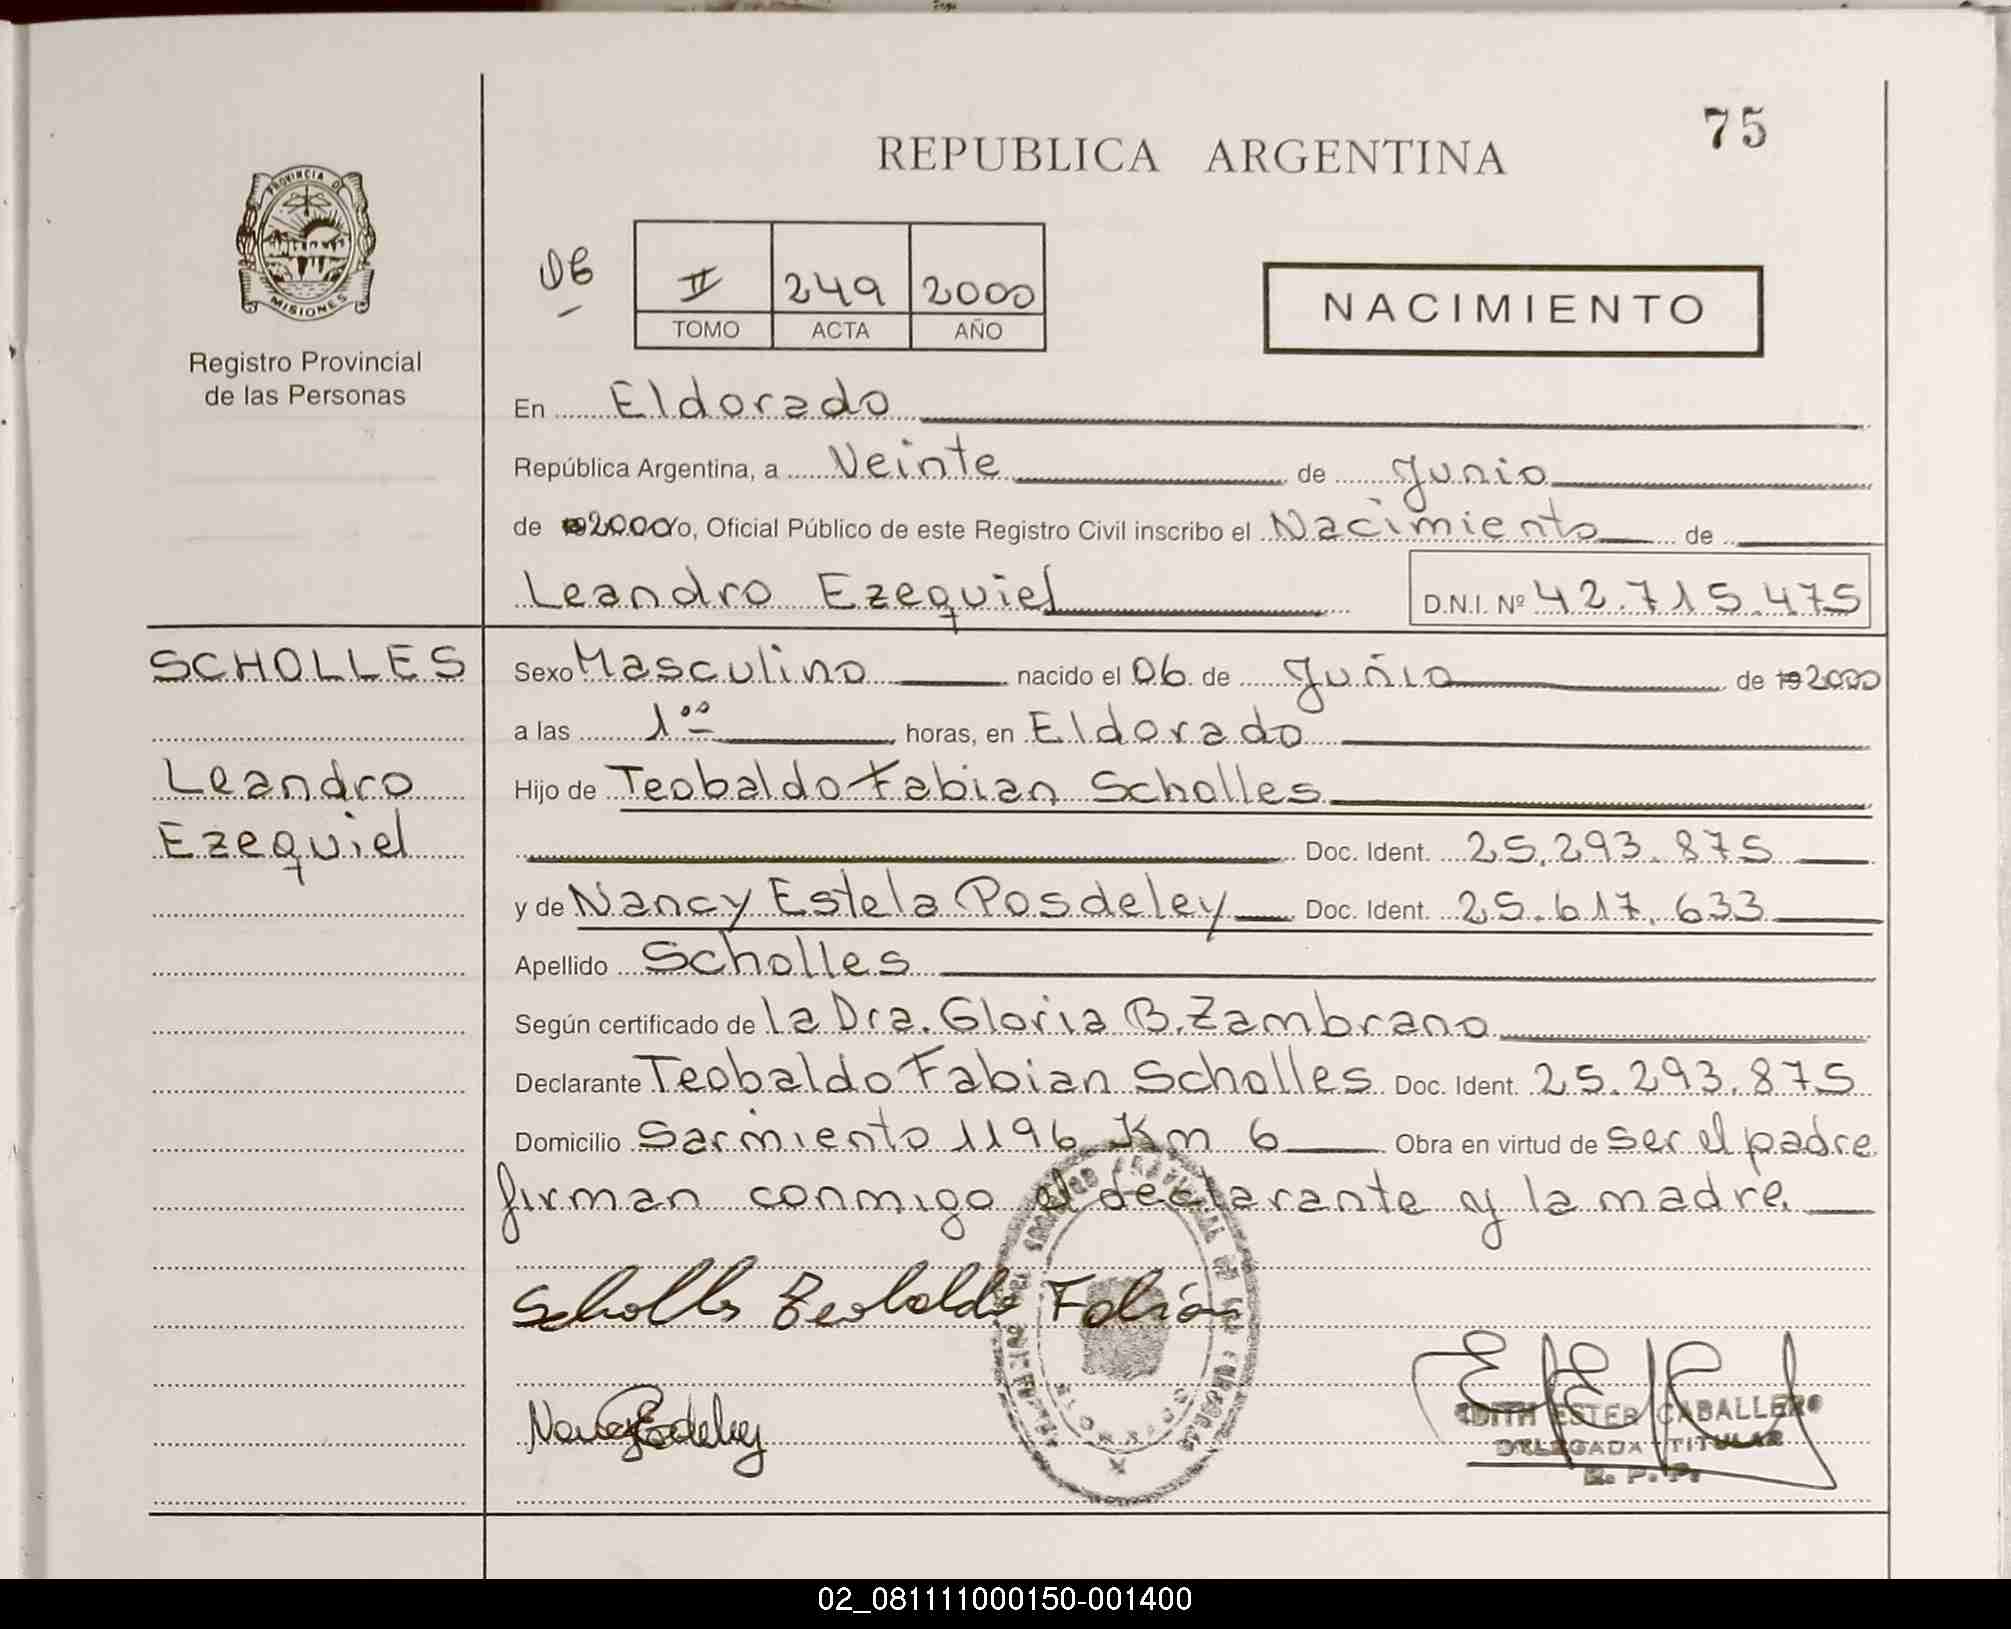 75
REPUBLICA ARGENTINA
PROVINCIA DE
MISIONES
Registro Provincial
de las Personas
06
II 249 2000
TOMO ACTA AÑO
NACIMIENTO
En Eldorado
República Argentina, a Veinte de Junio
de 2000 yo, Oficial Público de este Registro Civil inscribo el Nacimiento de
Leandro Ezequiel D.N.I. Nº 42.715.475
SCHOLLES
Leandro
Ezequiel
Sexo Masculino nacido el 06 de Junio de 19 2000
a las 1°° horas, en Eldorado
Hijo de Teobaldo Fabian Scholles
Doc. Ident. 25.293.875
y de Nancy Estela Posdeley Doc. Ident. 25.617.633
Apellido Scholles
Según certificado de la Dra. Gloria B. Zambrano
Declarante Teobaldo Fabian Scholles Doc. Ident. 25.293.875
Domicilio Sarmiento 1196 Km 6 Obra en virtud de ser el padre
firman conmigo el declarante y la madre.
Scholles Teobaldo Fabián
EDITH ESTER CABALLERO
DELEGADA TITULAR
R. P. P.
02_081111000150-001400